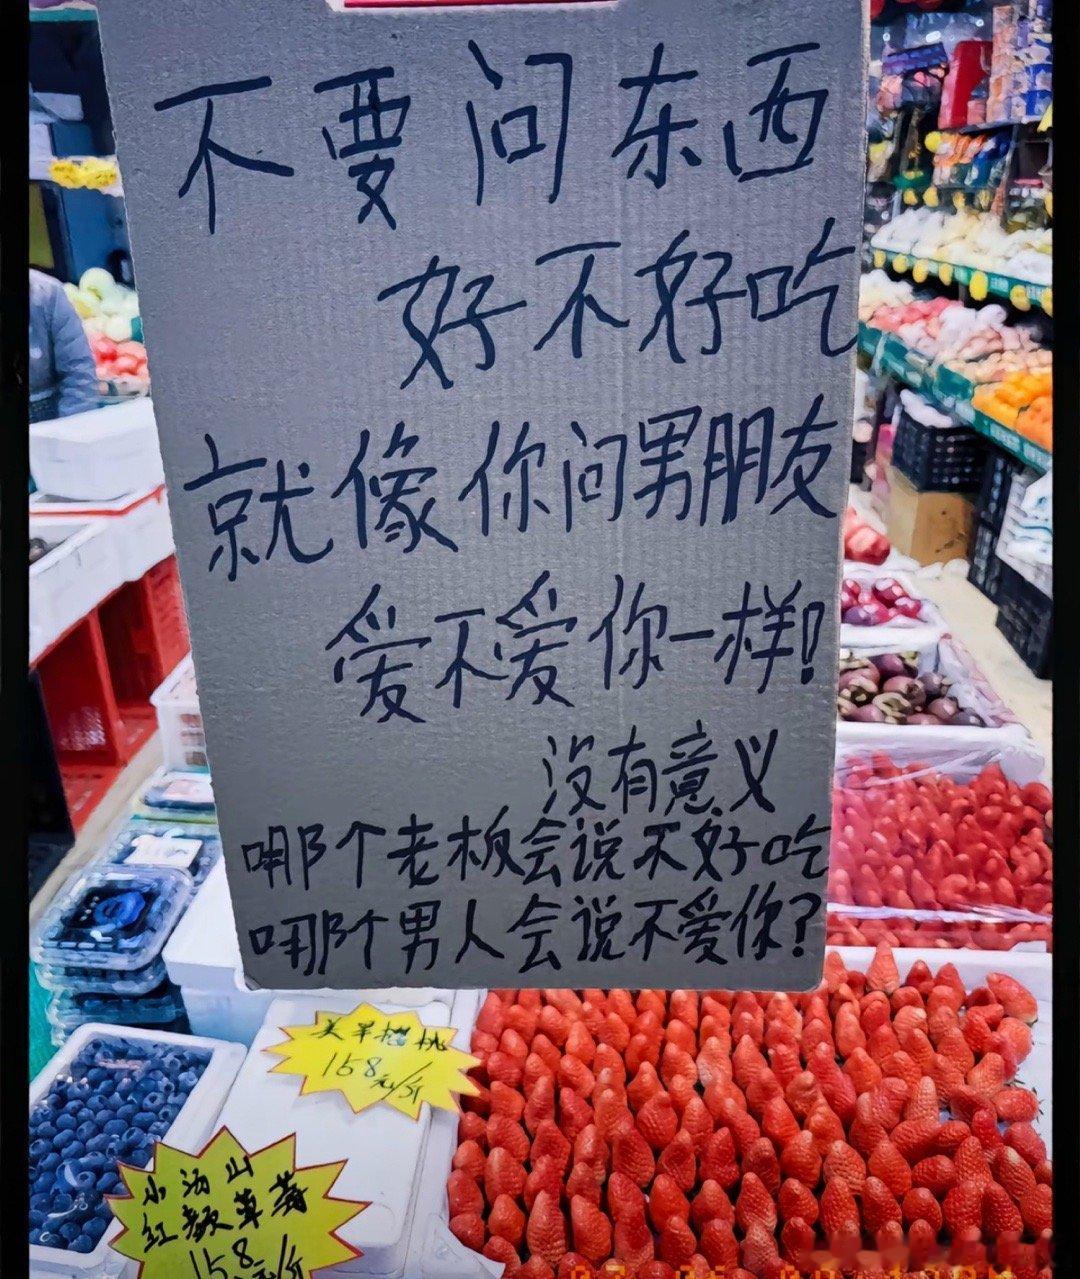 不要问东西
好不好吃
就像你问男朋友
爱不爱你一样!
没有意义
哪个老板会说不好吃
哪个男人会说不爱你?
158元/斤
小汤山
红颜草莓
158元/斤